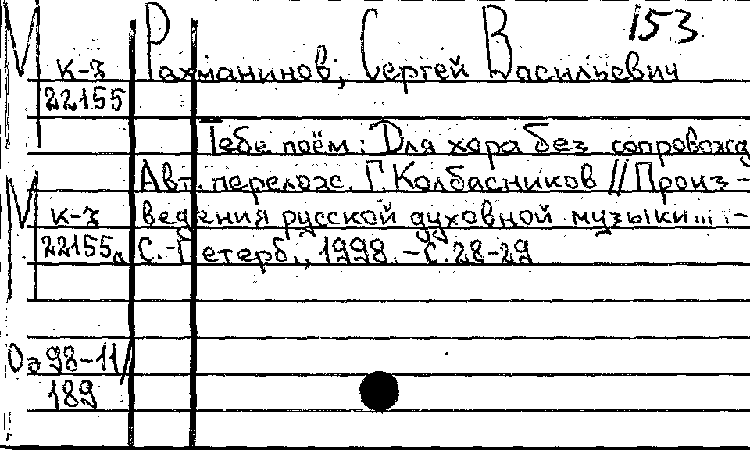 153
Рахманинов, Сергей Васильевич
М к-3
22155
Тебе поём: Для хора без сопровожд
Авт. перелож. Г. Колбасников // Произ-
М к-3 ведения русской духовной музыки... -
22155а С.-Петерб., 1998. - С. 28-29
Оэ 98-11/
189